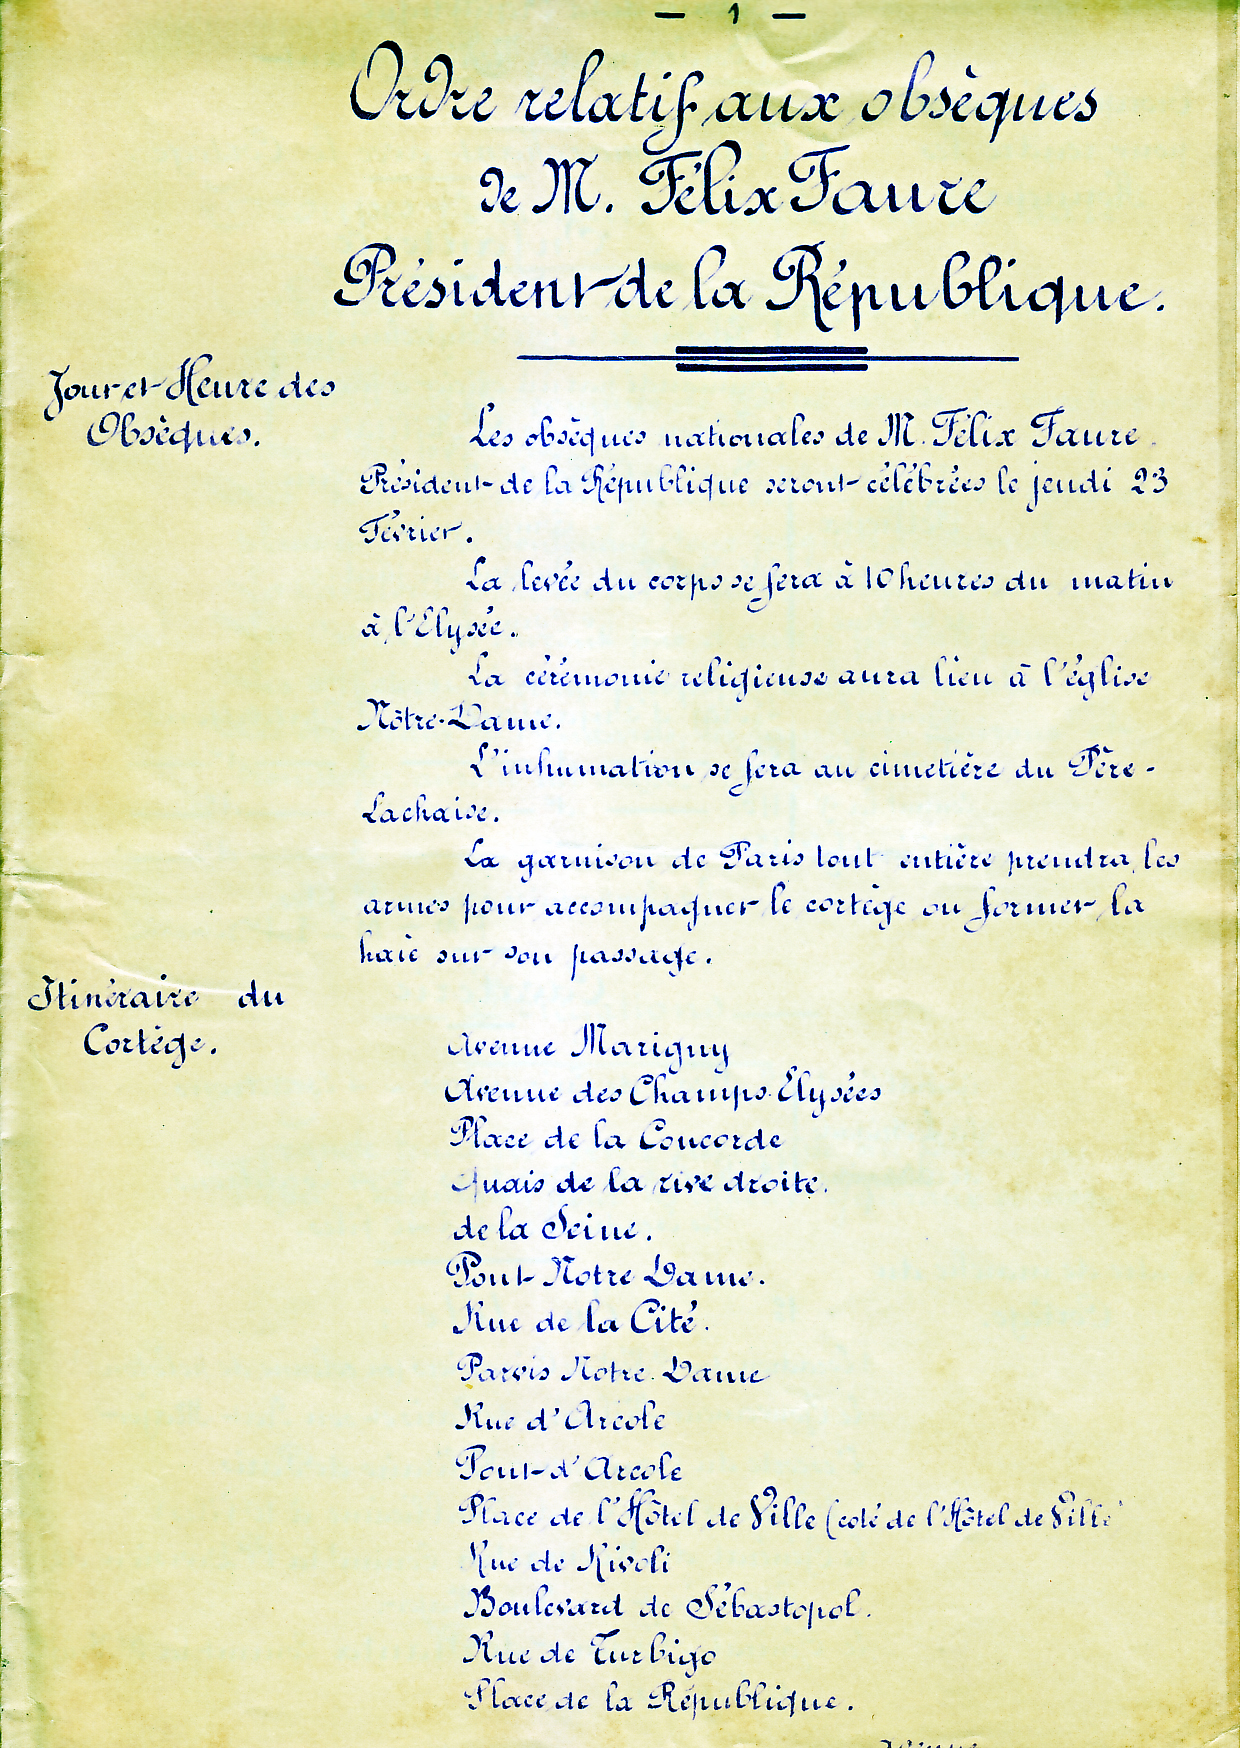 — 1 —
Ordre relatif aux obsèques
de M. Félix Faure
Président de la République.
Jour et Heure des
Obsèques.
Les obsèques nationales de M. Félix Faure
Président de la République seront célébrées le jeudi 23
Février.
La levée du corps se fera à 10 heures du matin
à l'Elysée.
La cérémonie religieuse aura lieu à l'église
Nôtre-Dame.
L'inhumation se fera au cimetière du Père-
Lachaise.
La garnison de Paris tout entière prendra les
armes pour accompagner le cortège ou former la
haie sur son passage.
Itinéraire du
Cortège.
Avenue Marigny
Avenue des Champs-Elysées
Place de la Concorde
Quais de la rive droite.
de la Seine.
Pont Notre Dame.
Rue de la Cité.
Parvis Notre-Dame
Rue d'Arcole
Pont d'Arcole
Place de l'Hôtel de Ville (coté de l'Hôtel de Ville
Rue de Rivoli
Boulevard de Sébastopol.
Rue de Turbigo
Place de la République.
Avenue